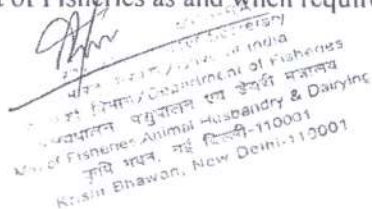 of Fisheries as and when requir
Secretary
of India
विभाग/Department of Fisheries
पशुपालन एवं डेयरी मंत्रालय
of Fisheries Animal Husbandry & Dairying
कृषि भवन, नई दिल्ली-110001
Krishi Bhawan, New Delhi-110001